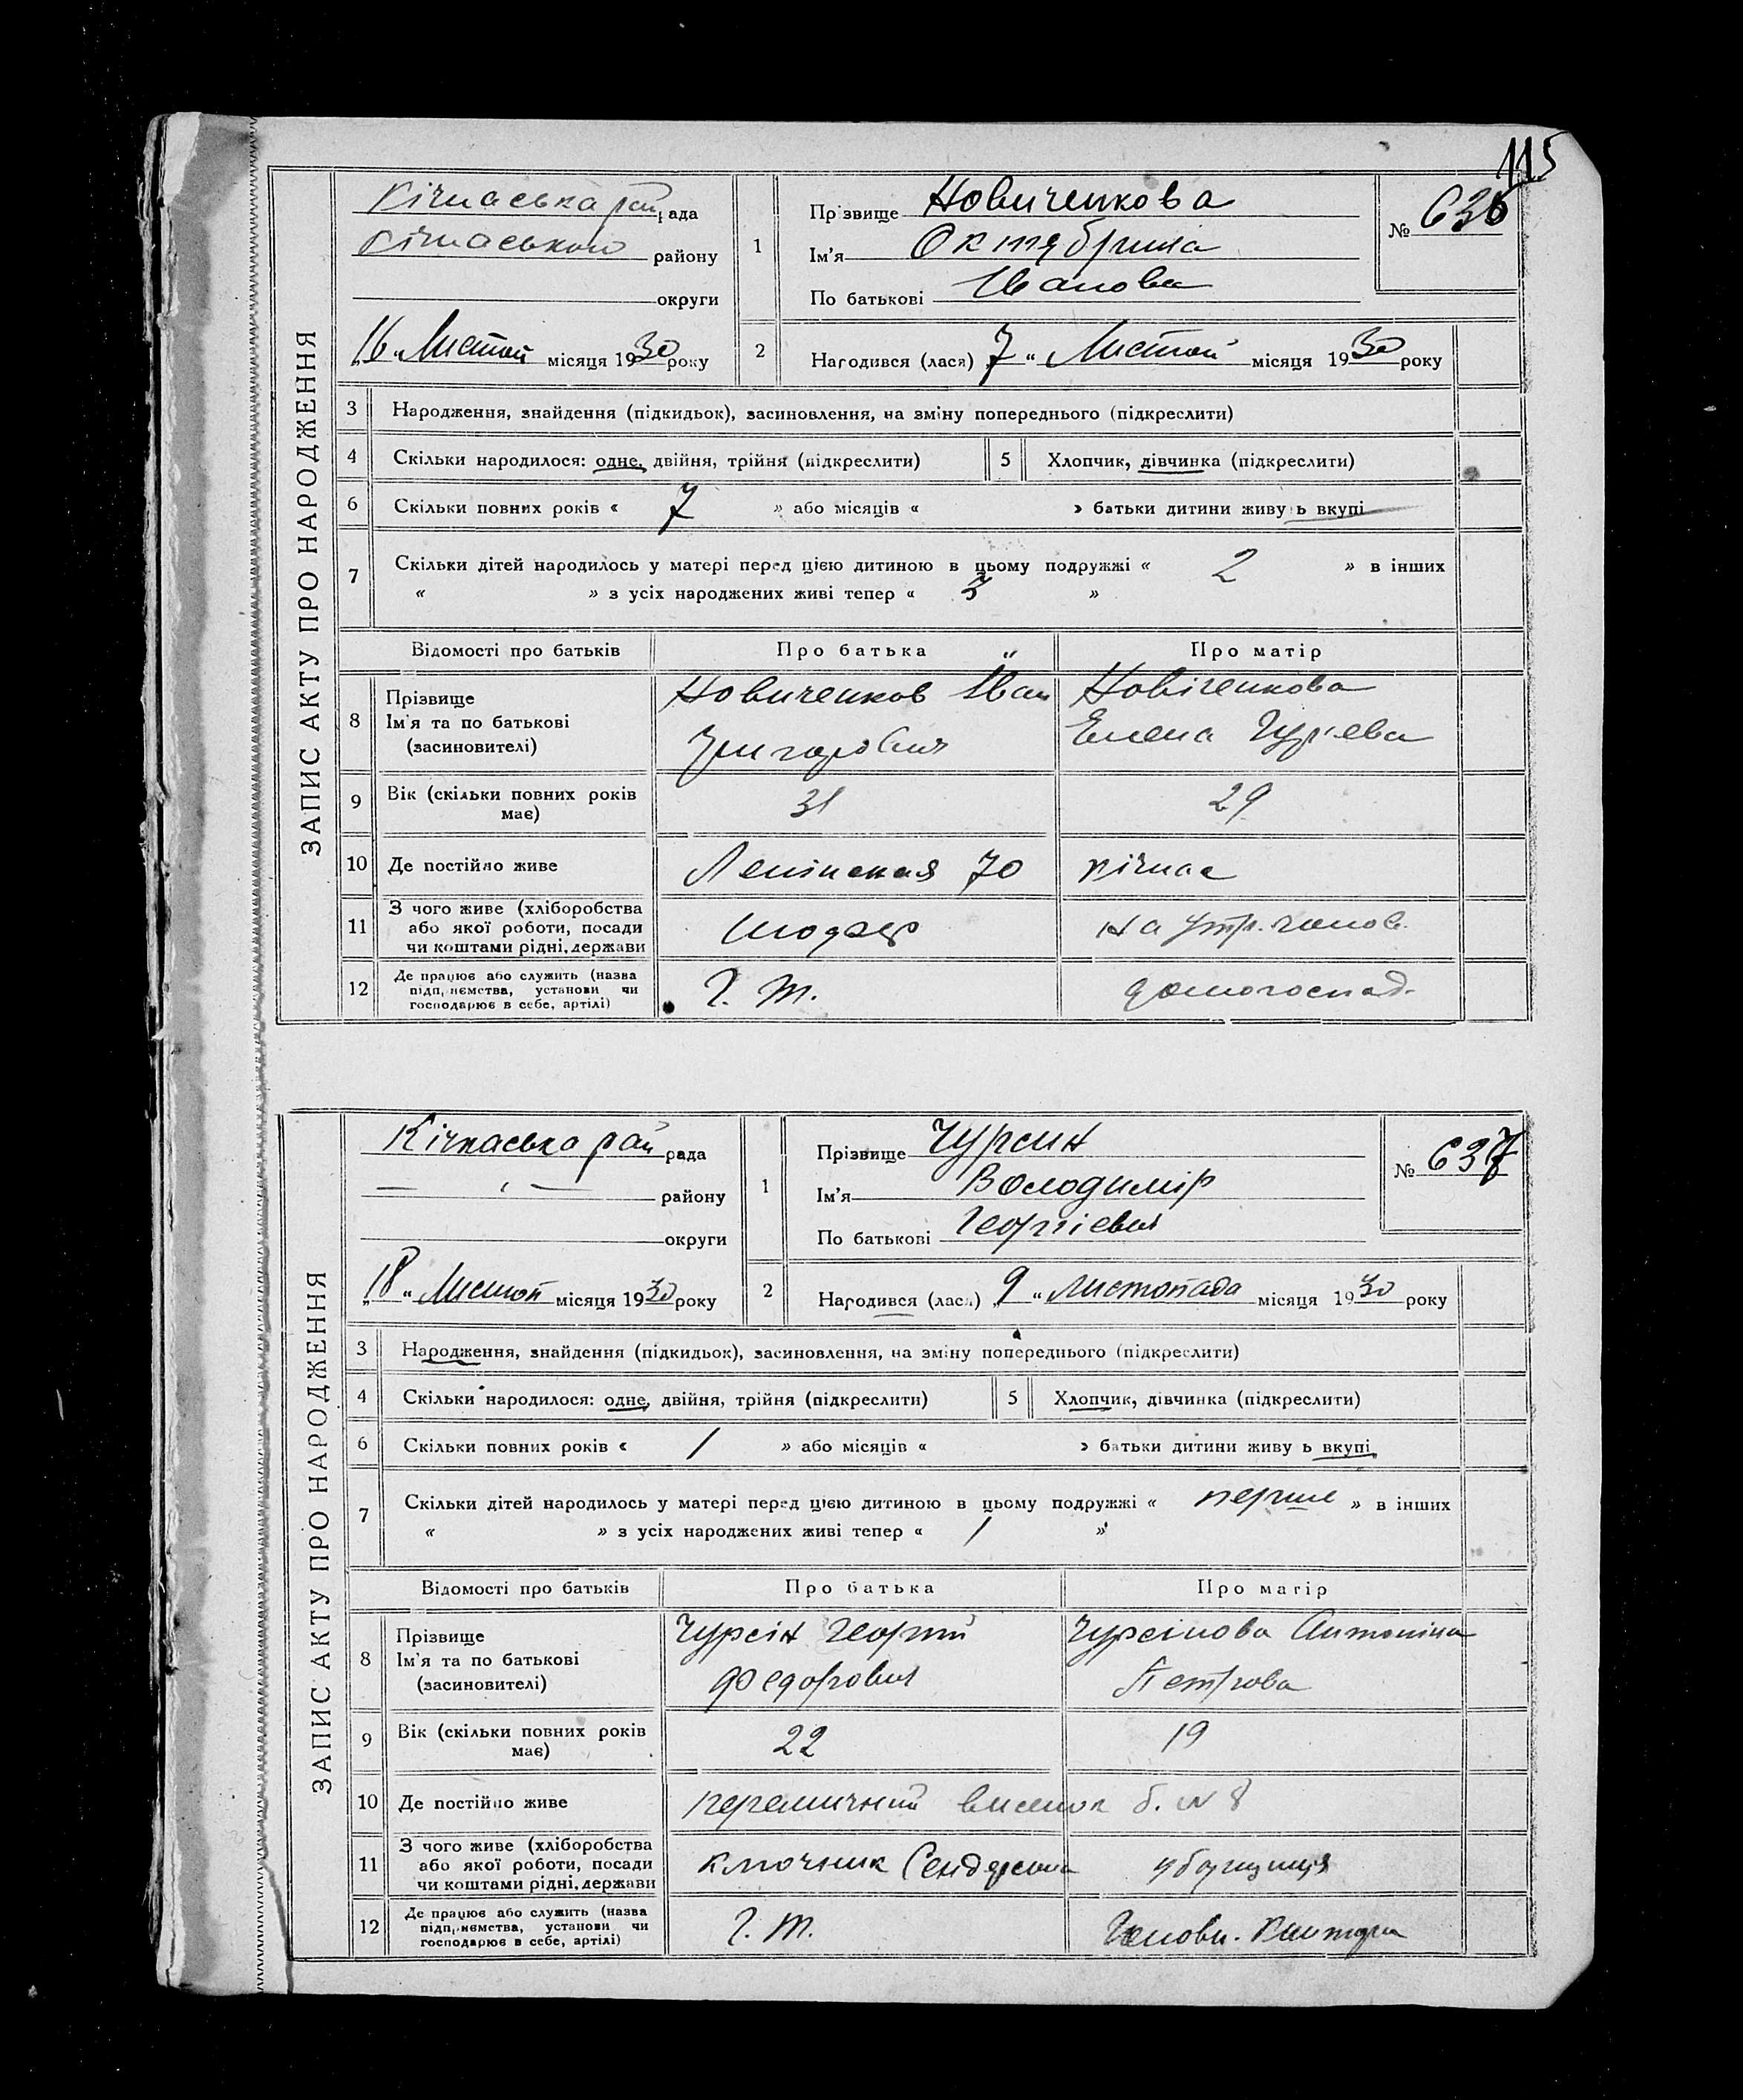 115
ЗАПИС АКТУ ПРО НАРОДЖЕННЯ
Кічкаська рай рада
Кічкаського району
округи
„16 „ Листоп місяця 1930 року
1
Прізвище Новиченкова
Ім'я Октябрина
По батькові Іванова
№ 636
2
Народився (лася) 7 “ Листоп місяця 1930 року
3 Народження, знайдення (підкидьок), засиновлення, на зміну попереднього (підкреслити)
4 Скільки народилося: одне, двійня, трійня (підкреслити) 5 Хлопчик, дівчинка (підкреслити)
6 Скільки повних років « 7 » або місяців « » батьки дитини живуть вкупі
7 Скільки дітей народилось у матері перед цією дитиною в цьому подружжі « 2 » в інших
« » з усіх народжених живі тепер « 3 »
Відомості про батьків Про батька Про матір
8 Прізвище Ім'я та по батькові (засновителі)
Новиченков Іван Новіченкова
Григорович Елена Гур'ева
9 Вік (скільки повних років має) 31 29
10 Де постійно живе Ленінская 70 Кічкас
11 З чого живе (хліборобства
або якої роботи, посади
чи коштами рідні, держави
шофер на утр. чолов.
12 Де працює або служить (назва
підприємства, установи чи
господарює в себе, артілі)
Г. Т. домогоспод.
ЗАПИС АКТУ ПРО НАРОДЖЕННЯ
Кічкаська рай рада
— „ — району
округи
„18 “ Листоп місяця 1930 року
1
Прізвище Чурсин
Ім'я Володимір
По батькові Георгієвич
№ 637
2
Народився (лася) „9 “ Листопада місяця 1930 року
3 Народження, знайдення (підкидьок), засиновлення, на зміну попереднього (підкреслити)
4 Скільки народилося: одне, двійня, трійня (підкреслити) 5 Хлопчик, дівчинка (підкреслити)
6 Скільки повних років « 1 » або місяців « » батьки дитини живуть вкупі
7 Скільки дітей народилось у матері перед цією дитиною в цьому подружжі « перше » в інших
« » з усіх народжених живі тепер « 1 »
Відомості про батьків Про батька Про матір
8 Прізвище
Ім'я та по батькові
(засиновителі)
Чурсін Георгій Чурсінова Антоніна
Федорович Петрова
9 Вік (скільки повних років має) 22 19
10 Де постійно живе виселок б. № 8
11 З чого живе (хліборобства
або якої роботи, посади
чи коштами рідні, держави
ключник убориця
12 Де працює або служить (назва
підприємства, установи чи
господарює в себе, артілі)
Г. Т. контора